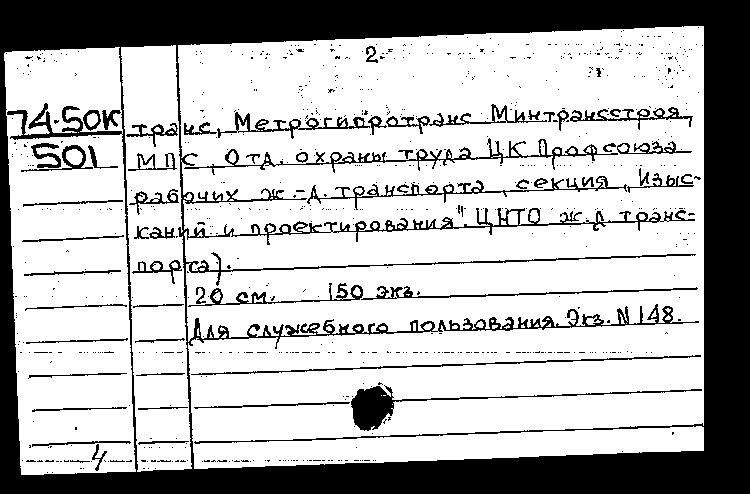 2
74-50К
501
транс, Метрогипротранс Минтрансстроя,
МПС, Отд. охраны труда ЦК Профсоюза
рабочих ж.-д. транспорта, секция „Изыс-
каний и проектирования". ЦНТО ж.д. транс-
порта).
20 см. 150 экз.
Для служебного пользования. Экз. N 148.
4